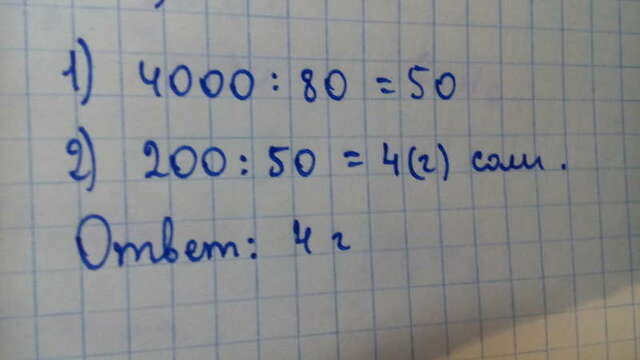 1) 4000 : 80 = 50
2) 200 : 50 = 4(г) соли.
Ответ: 4 г